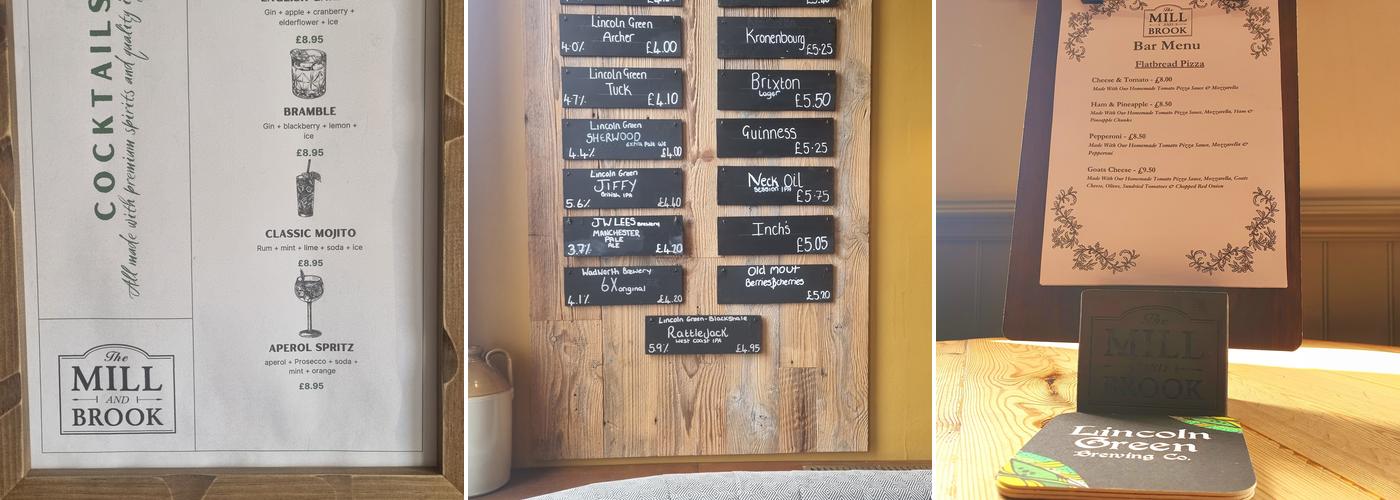 COCKTAILS
All made with premium spirits and quality
Gin + apple + cranberry +
elderflower + ice
£8.95
BRAMBLE
Gin + blackberry + lemon +
ice
£8.95
CLASSIC MOJITO
Rum + mint + lime + soda + ice
£8.95
APEROL SPRITZ
aperol + Prosecco + soda +
mint + orange
£8.95
The
MILL
AND
BROOK
Lincoln Green
Archer
4.0% £4.00
Lincoln Green
Tuck
4.7% £4.10
Lincoln Green
SHERWOOD
Extra Pale Ale
4.4% £4.00
Lincoln Green
JIFFY
British IPA
5.6% £4.40
JW LEES Brewery
MANCHESTER
PALE
ALE
3.7% £4.20
Wadworth Brewery
6X original
4.1% £4.20
Kronenbourg
£5.25
Brixton
Lager
£5.50
Guinness
£5.25
Neck Oil
Session IPA
£5.75
Inch's
£5.05
Old Mout
Berries&cherries
£5.20
Lincoln Green-Blackshale
Rattlejack
West Coast IPA
5.9% £4.95
The
MILL
AND
BROOK
Bar Menu
Flatbread Pizza
Cheese & Tomato - £8.00
Made With Our Homemade Tomato Pizza Sauce & Mozzarella
Ham & Pineapple - £8.50
Made With Our Homemade Tomato Pizza Sauce, Mozzarella, Ham &
Pineapple Chunks
Pepperoni - £8.50
Made With Our Homemade Tomato Pizza Sauce, Mozzarella &
Pepperoni
Goats Cheese - £9.50
Made With Our Homemade Tomato Pizza Sauce, Mozzarella, Goats
Cheese, Olives, Sundried Tomatoes & Chopped Red Onion
The
MILL
AND
BROOK
Lincoln
Green
Brewing Co.